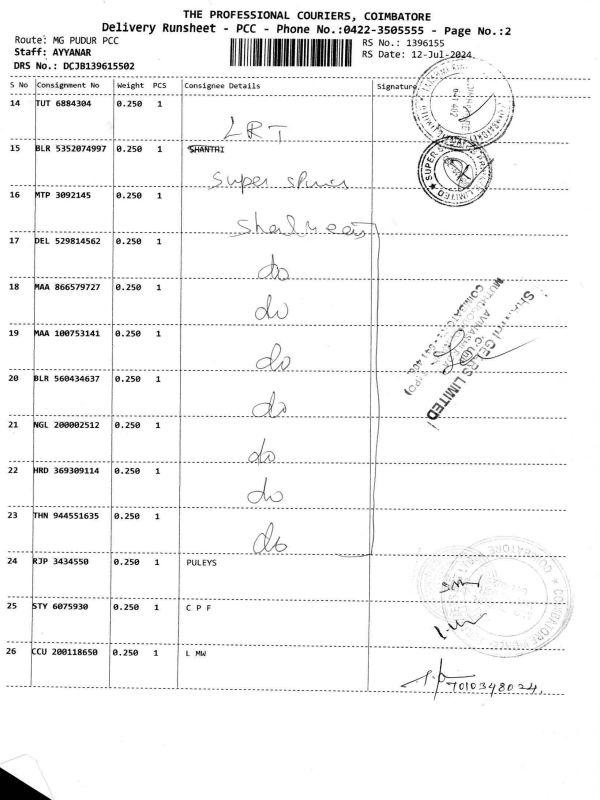 THE PROFESSIONAL COURIERS, COIMBATORE
Delivery Runsheet - PCC - Phone No.:0422-3505555 - Page No.:2
Route: MG PUDUR PCC
RS No.: 1396155
Staff: AYYANAR
RS Date: 12-Jul-2024
DRS No.: DCJB139615502
S No Consignment No Weight PCS Consignee Details Signature
14 TUT 6884304 0.250 1
LRT
15 BLR 5352074997 0.250 1 SHANTHI
Super
16 MTP 3092145 0.250 1
17 DEL 529814562 0.250 1
do
18 MAA 866579727 0.250 1
do
19 MAA 100753141 0.250 1
do
20 BLR 560434637 0.250 1
do
21 NGL 200002512 0.250 1
do
22 HRD 369309114 0.250 1
do
23 THN 944551635 0.250 1
do
24 RJP 3434550 0.250 1 PULEYS
25 STY 6075930 0.250 1 C P F
26 CCU 200118650 0.250 1 L MW
7010348024.
SUPER
LIMITED
GEARS LIMITED